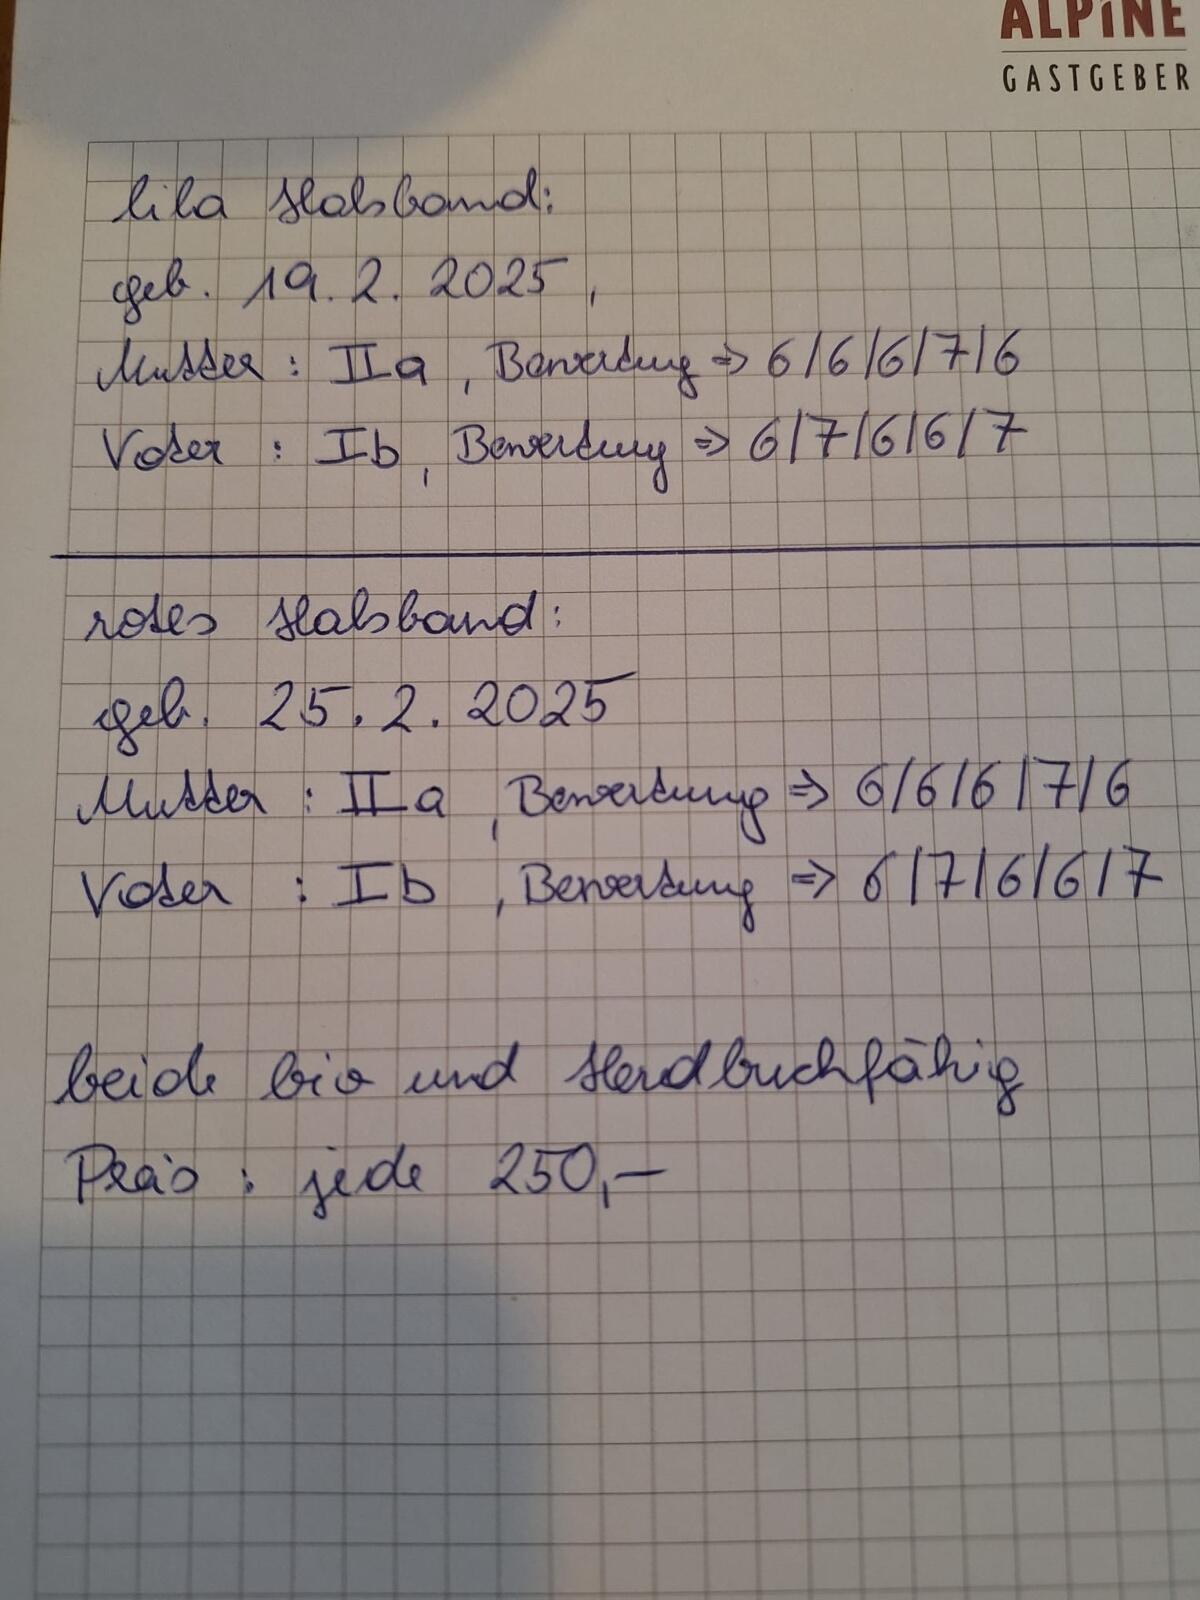 ALPiNE
GASTGEBER
lila Halsband:
geb. 19. 2. 2025,
Mutter : IIa, Bewertung => 6/6/6/7/6
Vater : Ib, Bewertung => 6/7/6/6/7
rotes Halsband:
geb. 25. 2. 2025
Mutter : IIa, Bewertung => 6/6/6/7/6
Vater : Ib, Bewertung => 6/7/6/6/7
beide bio und Herdbuchfähig
Preis : jede 250,-